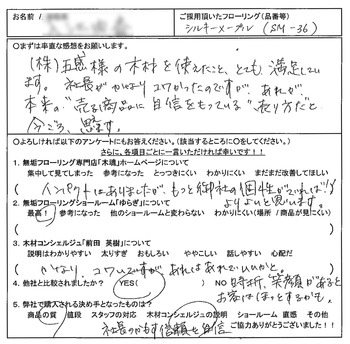 お名前
ご採用頂いたフローリング(品番等)
シルキーメープル (SM-36)
○まずは率直な感想をお願いします。
(株)五感様の木材を使えたこと、とても満足してい
ます。社長がかなりコワかったのですが、あれが
本来の"売る商品に自信をもっている"売り方だと
今ごろ、思います。
○よろしければ以下のアンケートにもお答えください。(該当するところに○をしてください。)
さらに、各項目ごとに一言いただければ幸いです!!
1. 無垢フローリング専門店「木魂」ホームページについて
集中して見てしまった 参考になった とっつきにくい わかりにくい まだまだ改善してほしい
(インパクトはありましたが、もっと御社の個性がでれば
よりよいと思います。)
2. 無垢フローリングショールーム「ゆらぎ」について
最高! 参考になった 他のショールームと変わらない わかりにくい(場所 / 商品が見にくい)
( )
3. 木材コンシェルジュ「前田 英樹」について
説明はわかりやすい 太りすぎ おもしろい ややこしい 話しやすい 心配だ
(かなり、コワいですが あれはあれでいいかと。
時折、笑顔があると
お客はほっとするかも。
4. 他社と比較されましたか? YES( ) NO
5. 弊社で購入される決め手となったものは?
商品の質 値段 スタッフの対応 木材コンシェルジュの説明 ショールーム 直感 その他
社長のかもす信頼と自信
ご協力ありがとうございました!!